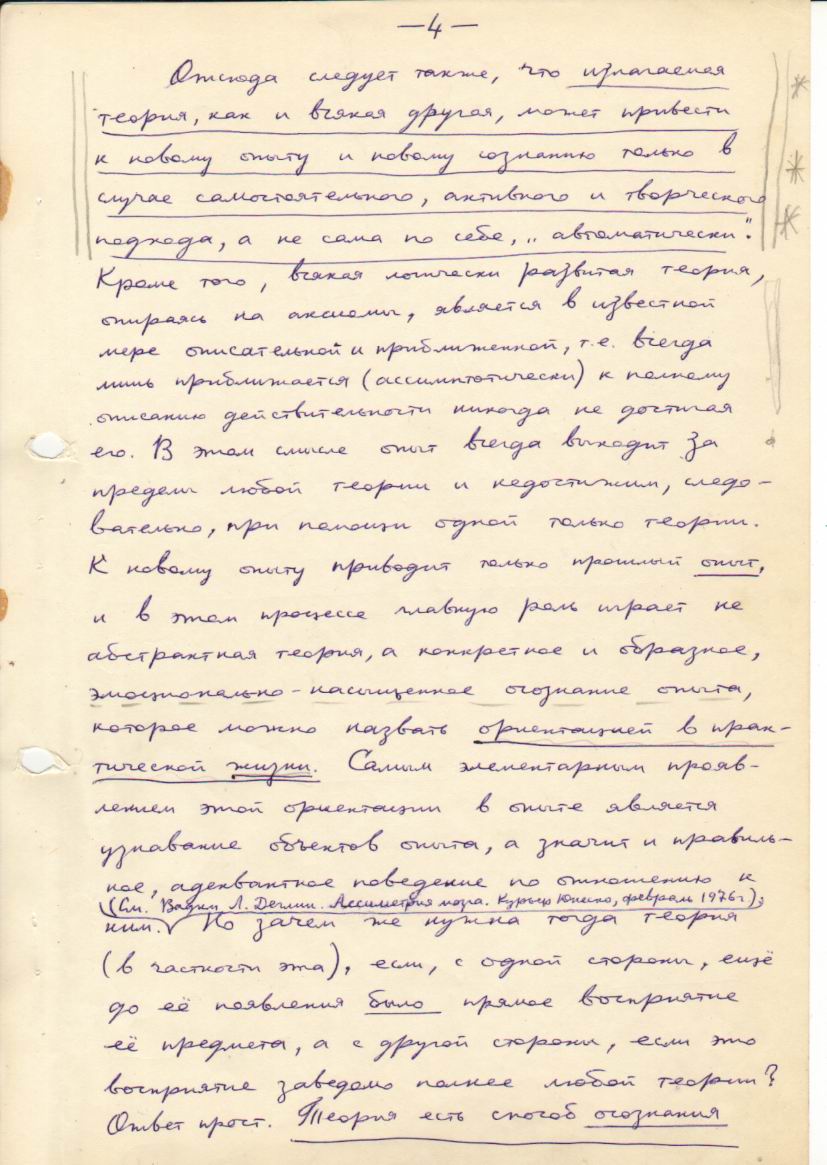 —4—
Отсюда следует также, что излагаемая
теория, как и всякая другая, может привести
к новому опыту и новому сознанию только в
случае самостоятельного, активного и творческого
подхода, а не сама по себе, „автоматически".
Кроме того, всякая логически развитая теория,
опираясь на аксиомы, является в известной
мере описательной и приближенной, т.е. всегда
лишь приближается (ассимптотически) к полному
описанию действительности никогда не достигая
его. В этом смысле опыт всегда выходит за
пределы любой теории и недостижим, следо-
вательно, при помощи одной только теории.
К новому опыту приводит только прошлый опыт,
и в этом процессе главную роль играет не
абстрактная теория, а конкретное и образное,
эмоционально-насыщенное осознание опыта,
которое можно назвать ориентацией в прак-
тической жизни. Самым элементарным прояв-
лением этой ориентации в опыте является
узнавание объектов опыта, а значит и правиль-
ное, адекватное поведение по отношению к
(См. Вадим Л. Деглин. Ассиметрия мозга. Курьер Юнеско, февраль 1976г);
ним. Но зачем же нужна тогда теория
(в частности эта), если, с одной стороны, ещё
до её появления было прямое восприятие
её предмета, а с другой стороны, если это
восприятие заведомо полнее любой теории?
Ответ прост. Теория есть способ осознания